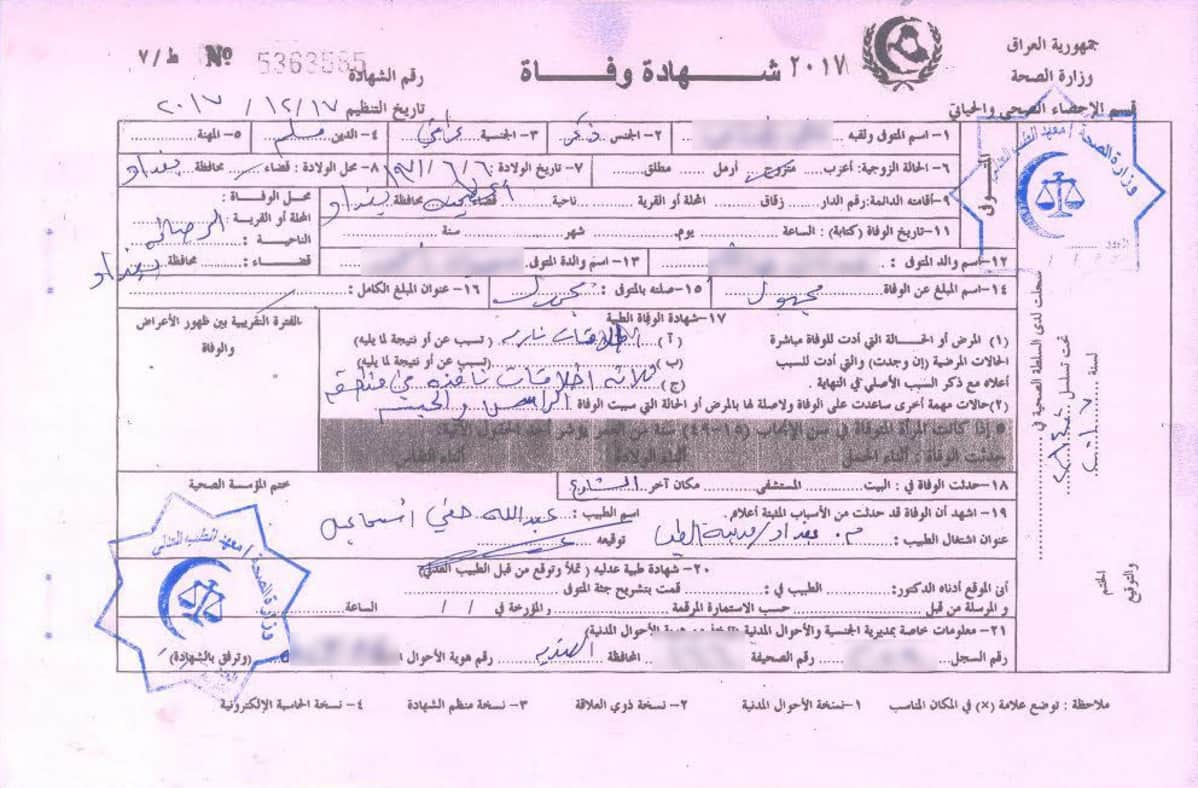 جمهورية العراق
وزارة الصحة
قسم الإحصاء الصحي والحياتي
شـــهادة وفـــاة ٢٠١٧
ط/٧ № 5363565 رقم الشهادة
تاريخ التنظيم ١٧ / ١٢ / ٢٠١٧
١- اسم المتوفى ولقبه ٢- الجنس ذكر ٣- الجنسية عراقي ٤- الدين مسلم ٥- المهنة
٦- الحالة الزوجية: أعزب متزوج أرمل مطلق ٧- تاريخ الولادة: ٨- محل الولادة: قضاء محافظة بغداد
٩- أقامته الدائمة: رقم الدار زقاق المحلة أو القرية ناحية قضاء محافظة بغداد
محل الوفاة:
المحلة أو القرية:
الناحية:
قضاء: محافظة بغداد
١١- تاريخ الوفاة (كتابة): الساعة يوم شهر سنة
١٢- اسم والد المتوفى: ١٣- اسم والدة المتوفى
١٤- اسم المبلغ عن الوفاة مجهول ١٥- صلته بالمتوفى: مجهول ١٦- عنوان المبلغ الكامل:
١٧- شهادة الوفاة الطبية
الفترة التقريبية بين ظهور الأعراض والوفاة
(١) المرض أو الحالة التي أدت للوفاة مباشرة (آ) اطلاقات نارية (تسبب عن أو نتيجة لما يليه)
الحالات المرضية (إن وجدت) والتي أدت للسبب (ب) (تسبب عن أو نتيجة لما يليه)
أعلاه مع ذكر السبب الأصلي في النهاية. (ج) ثلاثة اطلاقات نافذة في منطقة
(٢) حالات مهمة أخرى ساعدت على الوفاة ولاصلة لها بالمرض أو الحالة التي سببت الوفاة الرأس والجسم
● إذا كانت المرأة المتوفاة في سن الإنجاب (١٥-٤٩) سنة من العمر يؤشر أحد الحقول الآتية:
حدثت الوفاة: أثناء الحمل أثناء الولادة أثناء النفاس
١٨- حدثت الوفاة في: البيت المستشفى مكان آخر الشارع
ختم المؤسسة الصحية
١٩- اشهد أن الوفاة قد حدثت من الأسباب المثبتة أعلاه. اسم الطبيب: عبدالله اسماعيل
عنوان اشتغال الطبيب: م. بغداد/مدينة الطب توقيعه
٢٠- شهادة طبية عدلية (تملأ وتوقع من قبل الطبيب العدلي)
أنى الموقع أدناه الدكتور: الطبيب في: قمت بتشريح جثة المتوفى
و المرسلة من قبل حسب الاستمارة المرقمة و المؤرخة في / / الساعة
٢١- معلومات خاصة بمديرية الجنسية والأحوال المدنية هوية الأحوال المدنية)
رقم السجل رقم الصحيفة المحافظة رقم هوية الأحوال (وترفق بالشهادة)
سجلت لدى السلطة الصحية في
تحت تسلسل
لسنة
الختم والتوقيع
وزارة الصحة / معهد الطب العدلي
وزارة الصحة / معهد الطب العدلي
ملاحظة: توضع علامة (×) في المكان المناسب ١- نسخة الأحوال المدنية ٢- نسخة ذوي العلاقة ٣- نسخة منظم الشهادة ٤- نسخة الحاسبة الإلكترونية